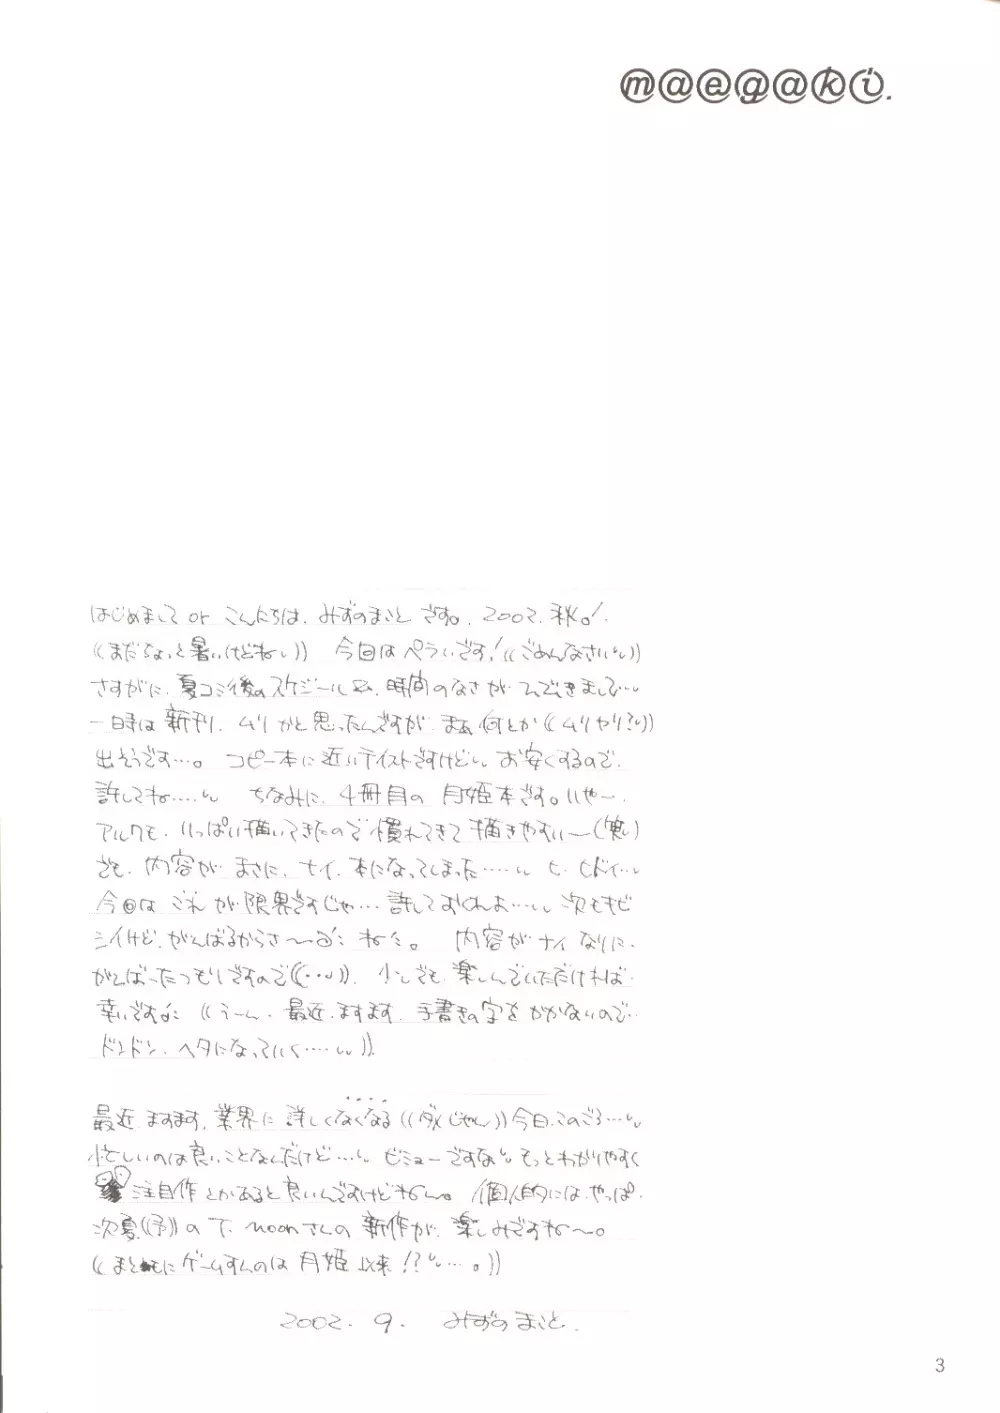 m@eg@ki.
はじめまして or こんにちは、みずのまことです。2002.秋。!
((まだちょいと暑いけどね〜)) 今回はペラいです!((ごめんなさい))
さすがに、夏コミ後のスケジュール、時間のなさが
一時は新刊、ムリかと思ったんですが、まぁ何とか((ムリヤリ?))
出そうです…。コピー本に近いテイストですけど お安くするので、
許してね…… ちなみに、4冊目の 月姫本です。いや〜、
アルクも、いっぱい描いてきたので慣れてきて描きやすい〜(笑)
でも、内容が まさに、ナイ、本になってしまった…… ヒ、ヒドイ…
今回は これ が 限界ですじゃ… 許しておくれよ… 次もキビ
シイけど、がんばるからさ〜 ね。 内容がナイなりに、
がんばったつもりですので((…)). 少しでも 楽しんでいただければ
幸いです ((うーん、最近、ますます、手書きの字をかかないので…
ドンドン、ヘタになっていく……)).
最近、ますます、業界に詳しくなくなる((ダメじゃん))今日このごろ…
忙しいのは良いことなんだけど… ビミョーですな もっとわかりやすく
注目作とかあると良いんですけどね〜。個人的には、やっぱ、
次夏((予))の T. moonさんの 新作が、楽しみですね〜。
((まともにゲームすんのは 月姫 以来!?…。))
2002. 9. みずのまこと.
3